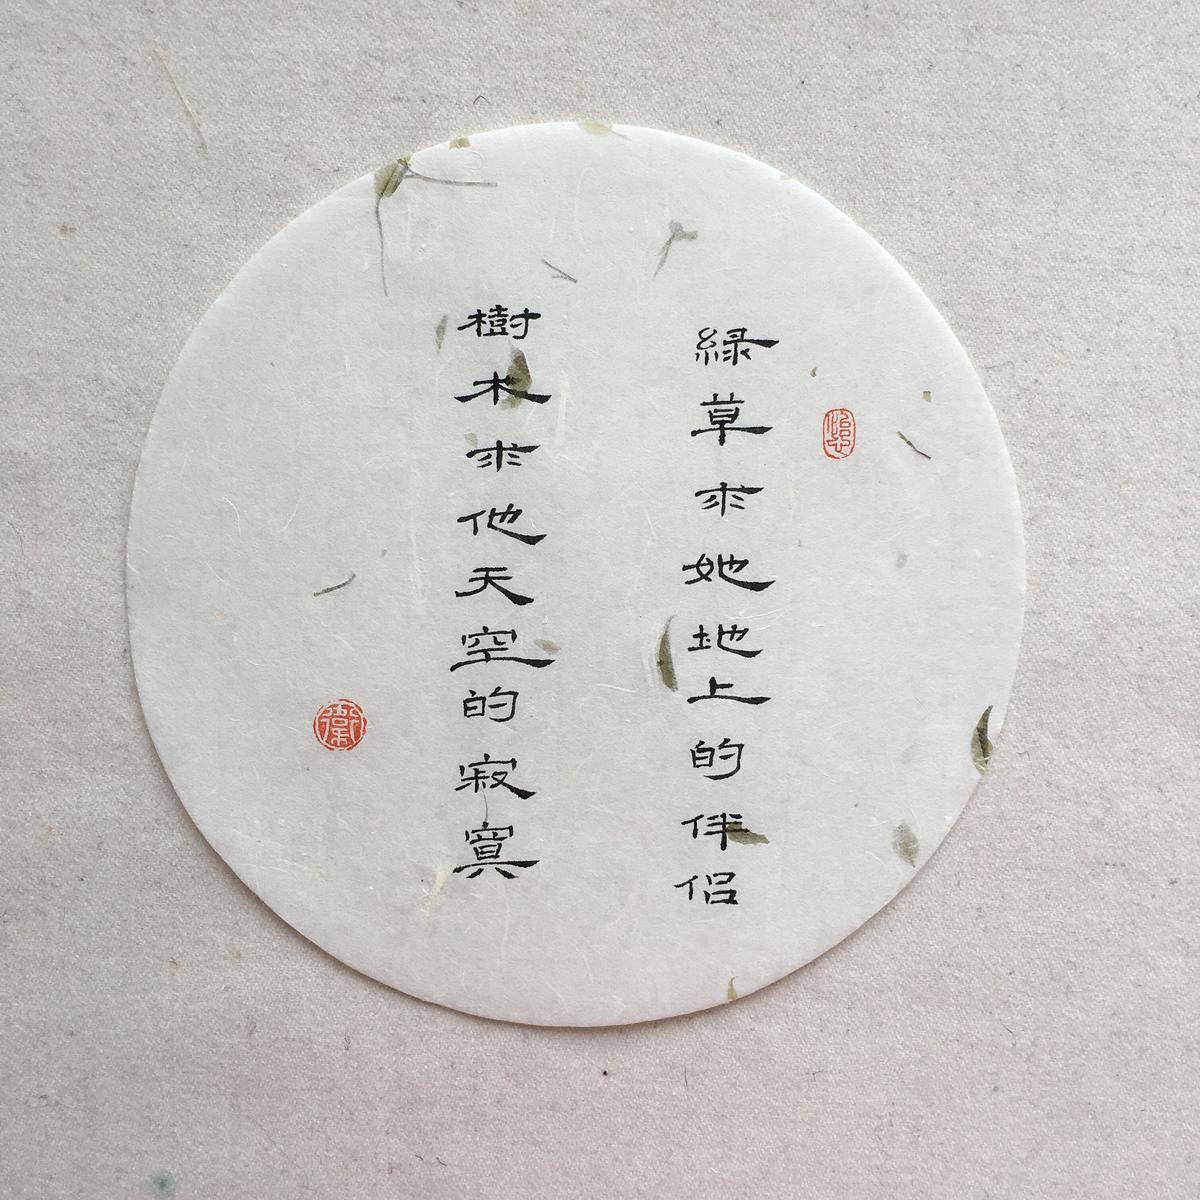 綠草求她地上的伴侶
樹木求他天空的寂寞
衛